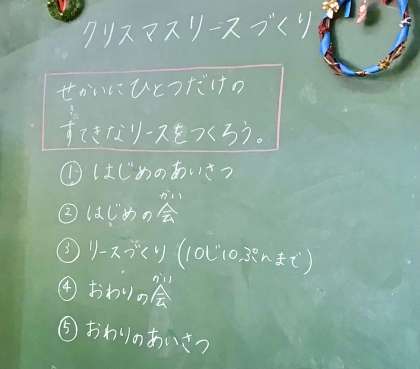 クリスマスリースづくり
せかいにひとつだけの
すてきなリースをつくろう。
① はじめのあいさつ
② はじめの会
かい
③ リースづくり (10じ10ぷんまで)
④ おわりの会
かい
⑤ おわりのあいさつ